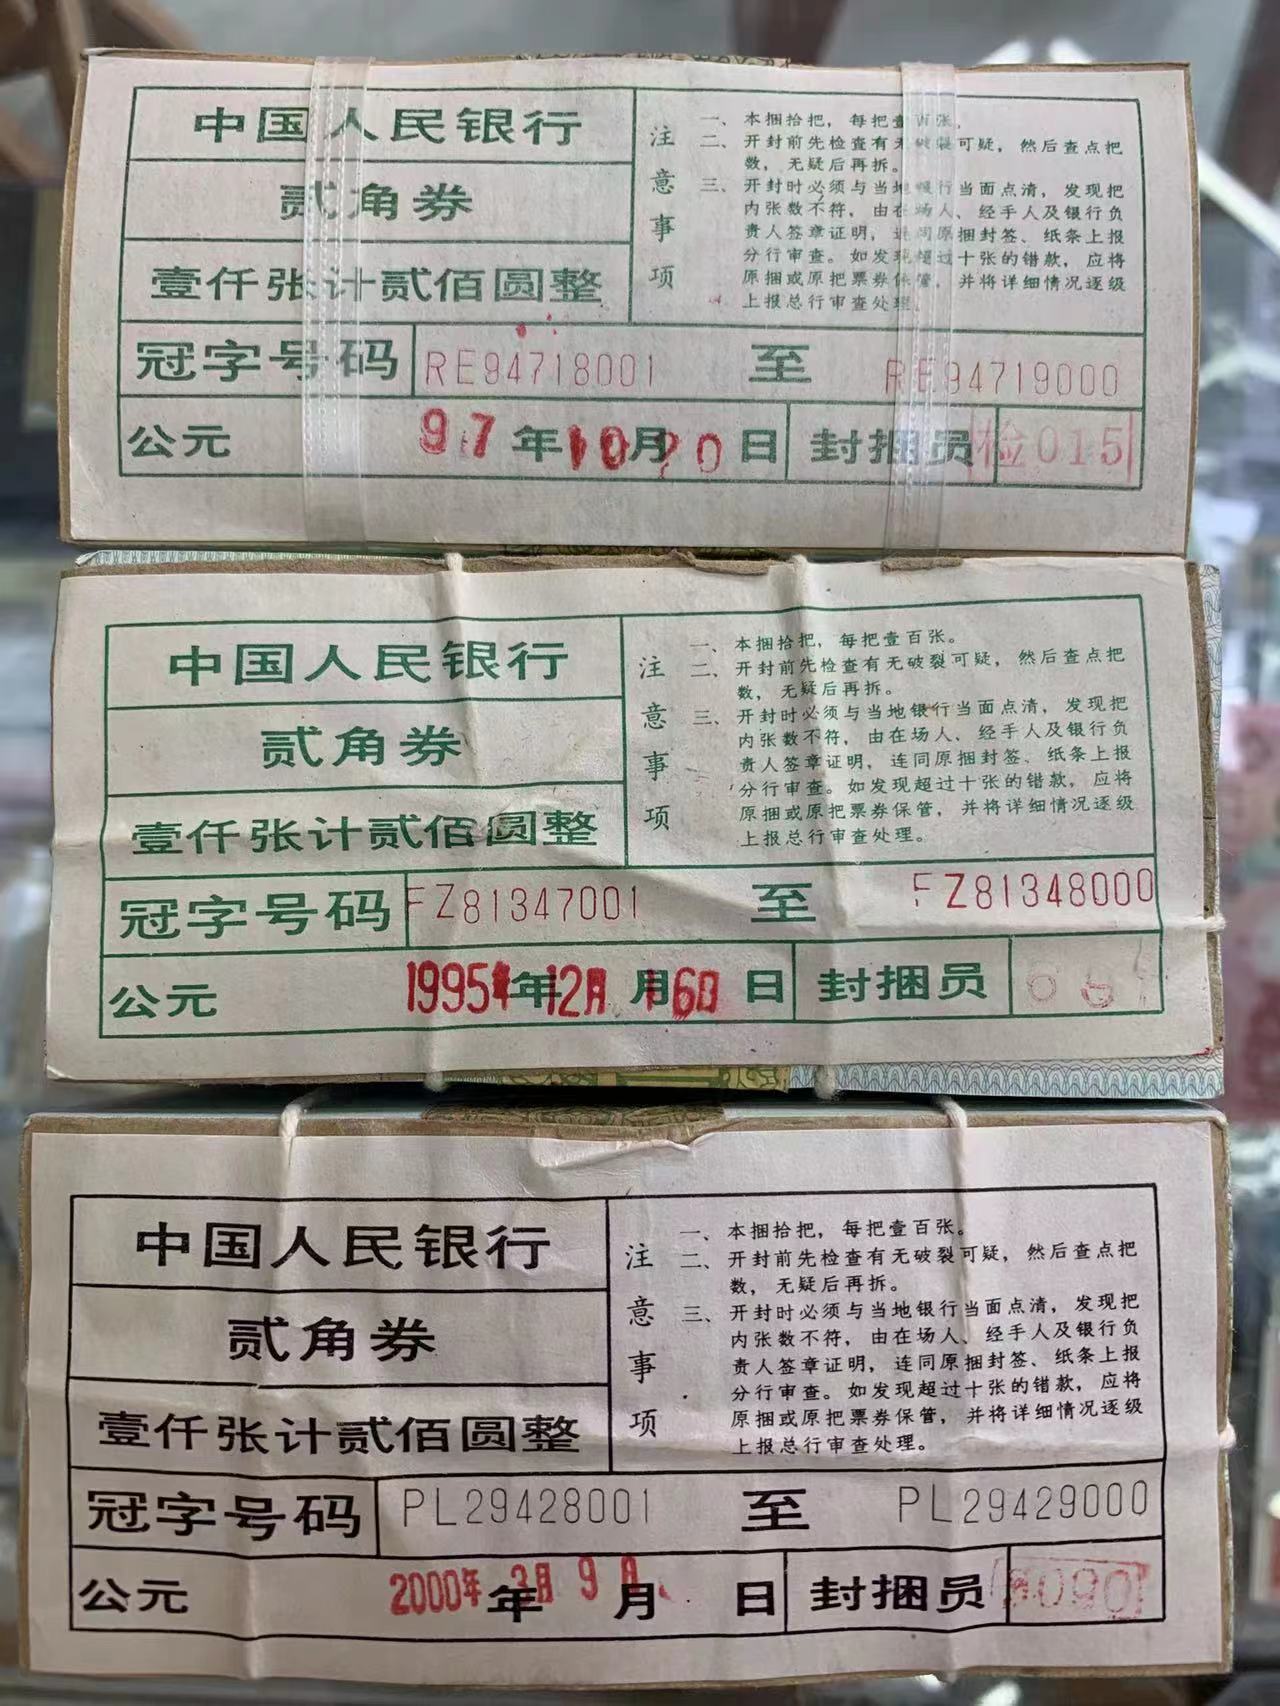 中国人民银行
贰角券
壹仟张计贰佰圆整
注意事项
一、本捆拾把，每把壹百张。
二、开封前先检查有无破裂可疑，然后查点把
数，无疑后再拆。
三、开封时必须与当地银行当面点清，发现把
内张数不符，由在场人、经手人及银行负
责人签章证明，连同原捆封签、纸条上报
分行审查。如发现超过十张的错款，应将
原捆或原把票券保管，并将详细情况逐级
上报总行审查处理。
冠字号码 RE94718001 至 RE94719000
公元 97年10月20日 封捆员 检015
中国人民银行
贰角券
壹仟张计贰佰圆整
注意事项
一、本捆拾把，每把壹百张。
二、开封前先检查有无破裂可疑，然后查点把
数，无疑后再拆。
三、开封时必须与当地银行当面点清，发现把
内张数不符，由在场人、经手人及银行负
责人签章证明，连同原捆封签、纸条上报
分行审查。如发现超过十张的错款，应将
原捆或原把票券保管，并将详细情况逐级
上报总行审查处理。
冠字号码 FZ81347001 至 FZ81348000
公元 1995年年12月月16日日 封捆员
中国人民银行
贰角券
壹仟张计贰佰圆整
注意事项
一、本捆拾把，每把壹百张。
二、开封前先检查有无破裂可疑，然后查点把
数，无疑后再拆。
三、开封时必须与当地银行当面点清，发现把
内张数不符，由在场人、经手人及银行负
责人签章证明，连同原捆封签、纸条上报
分行审查。如发现超过十张的错款，应将
原捆或原把票券保管，并将详细情况逐级
上报总行审查处理。
冠字号码 PL29428001 至 PL29429000
公元 2000年年3月9日月日 封捆员